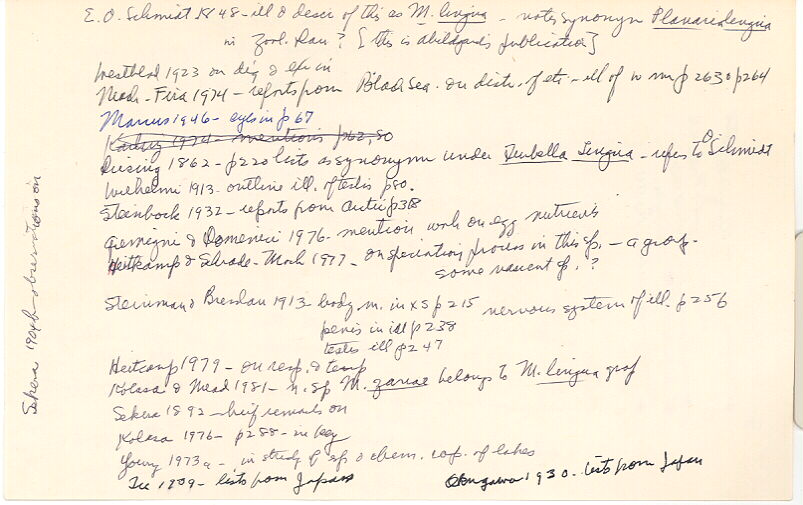 E. O. Schmidt 1848 - ill & descr of this as M. lingua - notes synonym Planaria lingua
in Zool. Dan? [this is abildgards publication]
Westblad 1923 on dig & exc in
Mack-Fira 1974 - reports from Black Sea. on distr. of etc - ill of in m p 263 & p 264
Marcus 1946 - eyes in p 67
1974 - mentions p62, 80
Diesing 1862 - p 220 lists as synonym under Turbella Lingua - refers to O Schmidt
Wilhelmi 1913 - outline ill. of testis p80.
Steinbock 1932 - reports from Arctic p 318
Gremigni & Domenici 1976 - mention work on egg nutrients
Heitkamp & Schrade-Mock 1977 - on speciation process in this sp. - a group.
some nascent sp. ?
Steinmann & Bresslau 1913 - body m. in XS p 215 nervous system of ill. p 256
penis in ill p 238
testis ill p 247
Heitkamp 1979 - on resp. & temp
Kolasa & Mead 1981 - n. sp M. zariae belongs to M. lingua grp
Sekera 1892 - brief remarks on
Kolasa 1976 - p 288 - in key
Young 1973a - in study of sp & chem. cop. of lakes
1909 - lists from Japan
Okugawa 1930 - lists from Japan
Sekera 1904b - observations on